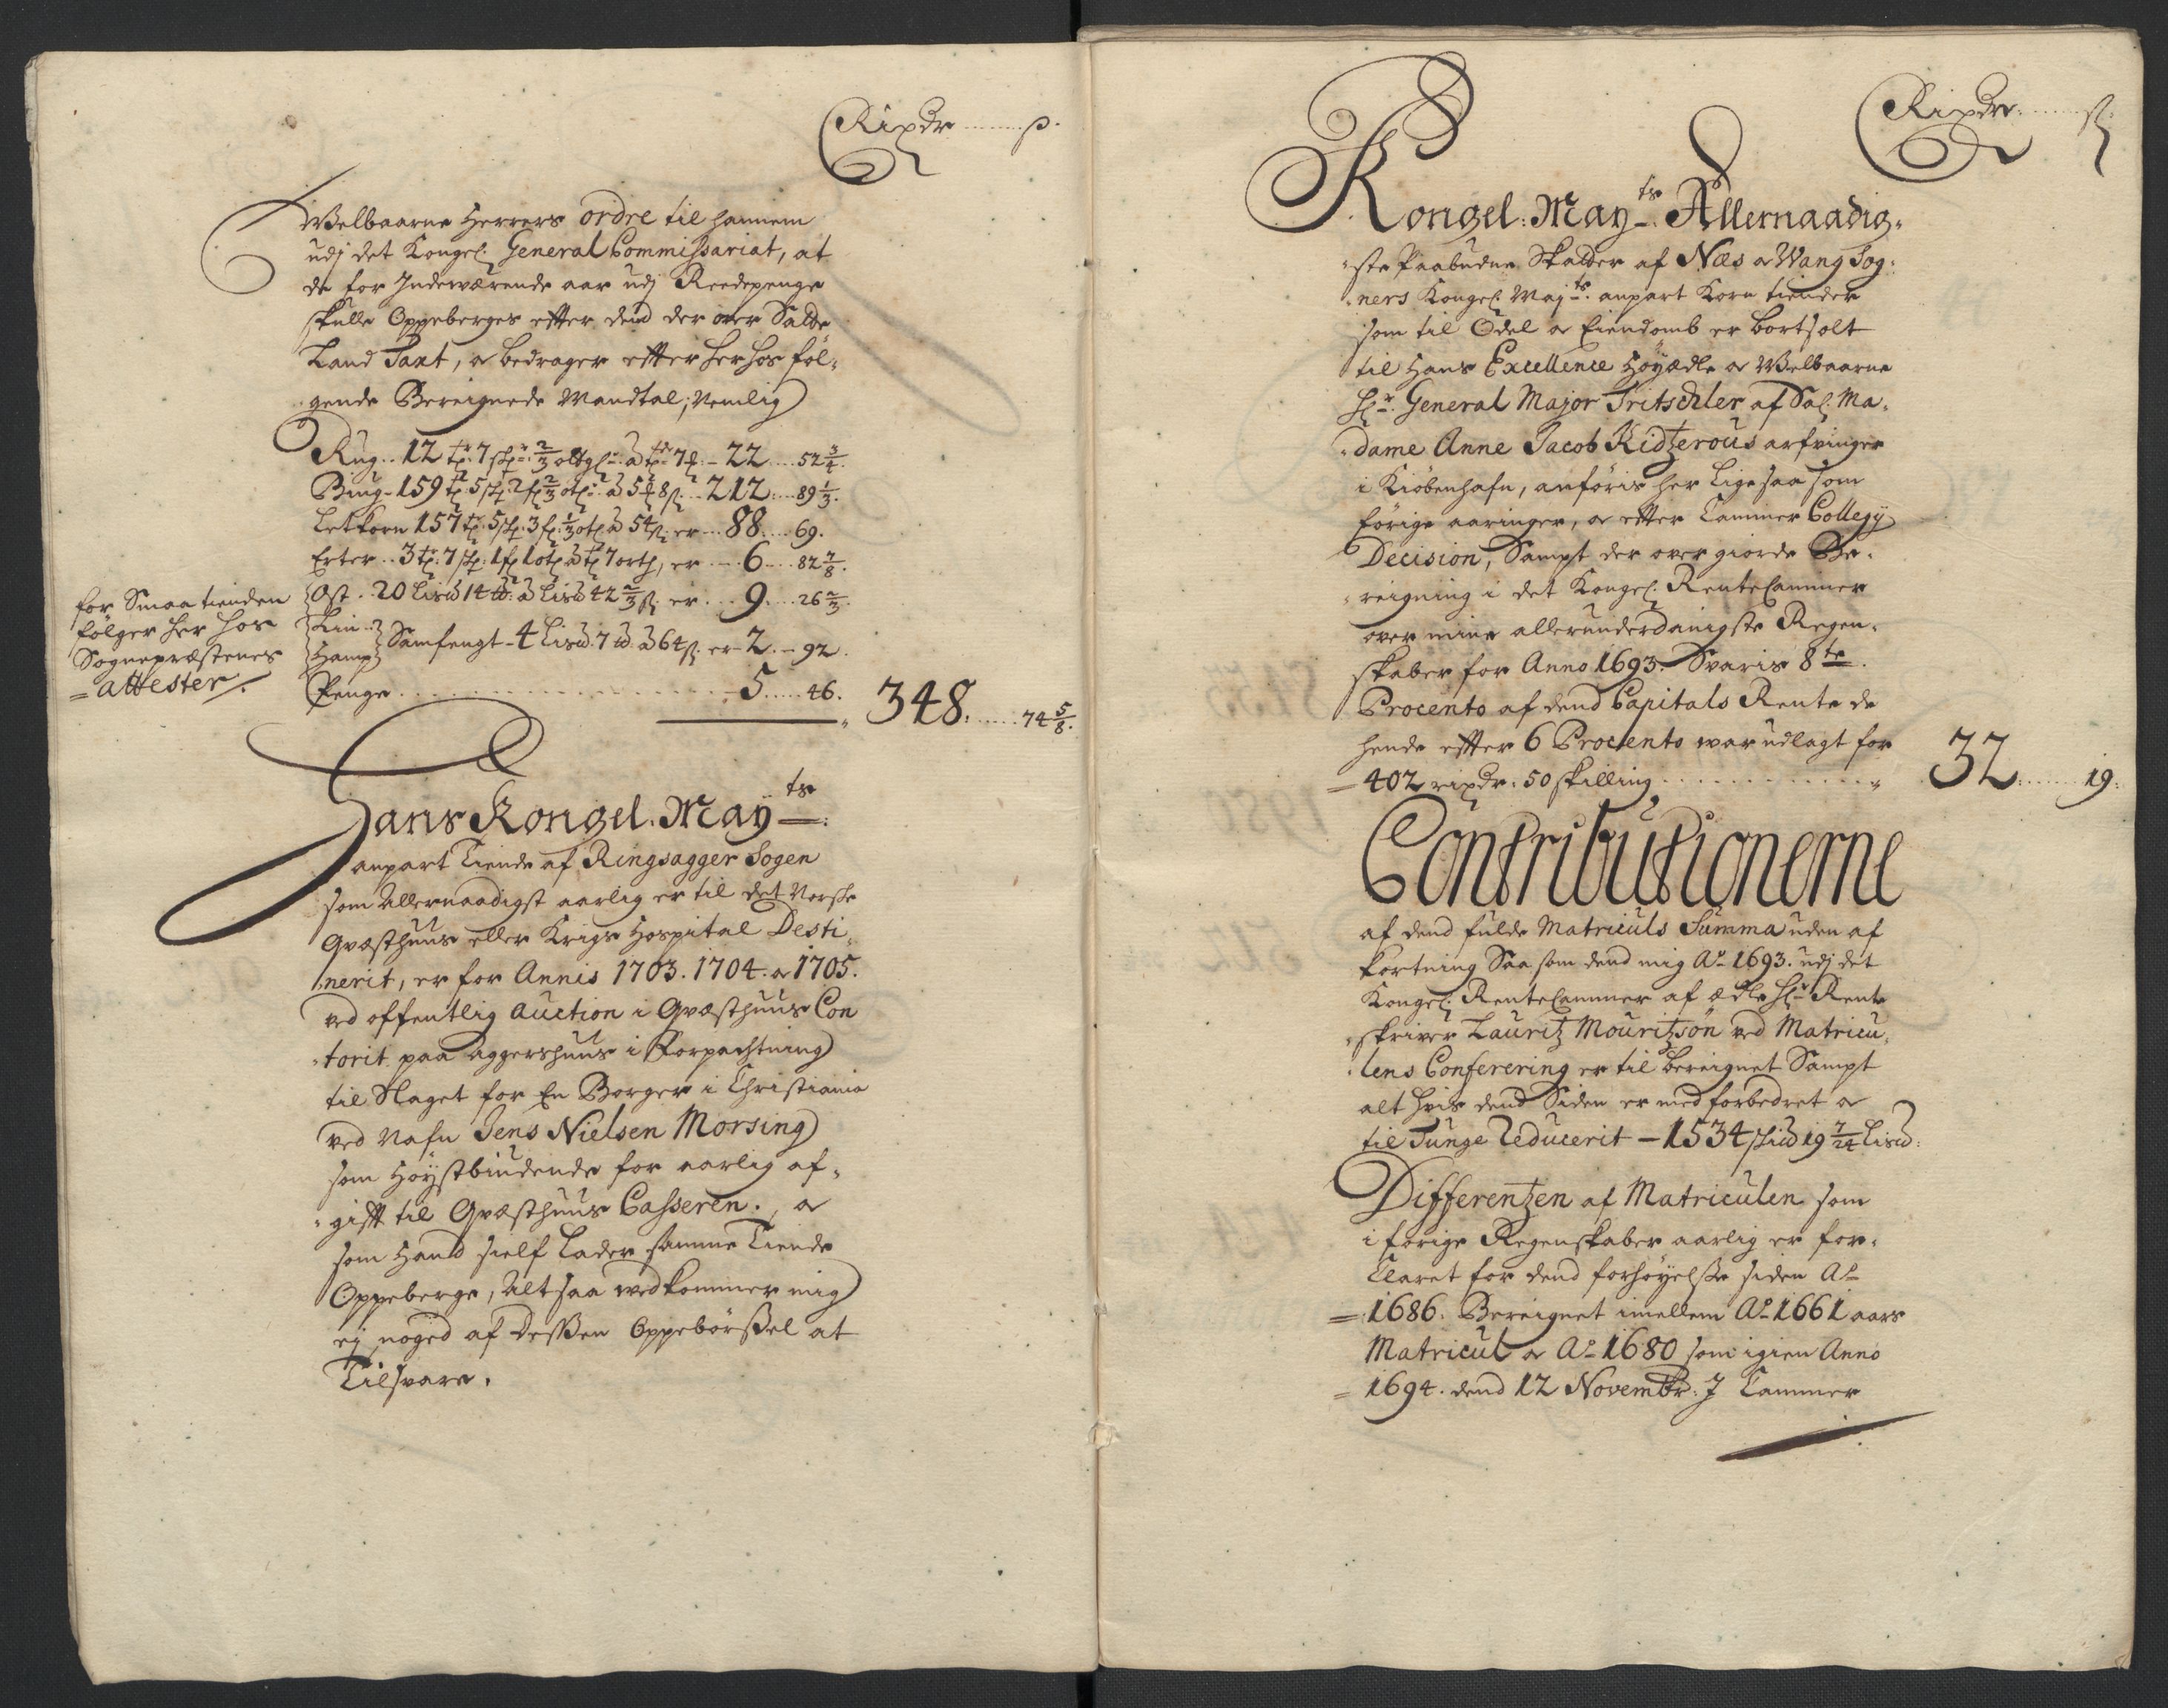 Rixdr ...... ß.
Welbaarne Herrers ordre til hannem
udj det Kongel: General Commissariat, at
de for Indeværende aar udj Reedepenge
skulle Oppeberges efter dend der over Satte
Land Taxt, a bedrager efter her hos föl-
gende Bereignede Mandtal, Nemlig
Rug .. 12 tr: 7 skp: 2/3 ottgl: à tr 7 - 22 ... 52 3/4.
Biug - 159 t: 5 skp: 2 f 2/3 ot: à 5 8 ß: .. 212 ... 89 1/3.
Letkorn 157 t: 5 skp: 3 f: 1/3 ot à 54 ß: er ... 88 ... 69.
Erter .. 3 t: 7 skp: 1 f 1 ot à t 7 orth, er ... 6 ... 82 7/8.
Ost .. 20 Lisd 14 td: à Lisd 42 2/3 ß: er ... 9 ... 26 2/3.
Liin
Hamp Samfengt - 4 Lisd: 7 td: à 64 ß: er - 2 .. 92.
Penge ............ 5 .... 46.
348 ..... 74 5/8.
for Smaa tienden
følger her hos
Sognepræstenes
= attester
Hans Kongel. Mayts:
anpart Tiende af Ringsagger Sogen
som Allernaadigst aarlig er til det Norske
Qvæsthuus eller Krigs Hospital Desti-
nerit, er for Annis 1703. 1704. a 1705.
ved offentlig Auction i Qvæsthuus Con
-torit paa Aggershuus i Forpachtning
til Slaget for En Borger i Christiania
ved Nafn Jens Nielsen Morsing
som Høystbiudende for aarlig af-
-gift til Qvæsthuus Casseren., a
som Hand sielf Lader samme Tiende
Oppeberge, Alt saa vedkommer mig
ej noged af Dessen Oppebörssel at
Tilsvare.
Rixdr. ...... ß:
Kongel: Mayts Allernaadig-
-ste Paabudne Skatter af Næs a Wang Sog-
-ners Kongel: Majts. anpart Korn tiender
som til Odel a Eiendomb er bortsolt
til Hans Excellence Höyædle a Welbaarne
Hr: General Major Tritschler af Sal: Ma-
-dame Anne Jacob Ridzerous arfvinger
i Kiöbenhafn, anföris her Lige saa som
forige aaringer, a efter Cammer Collegij
Decision, Sampt der over giorde Be-
-reigning i det Kongel: RenteCammer
over mine allerunderdanigste Regen-
skaber for Anno 1693. Svaris 8te
Procento af dend Capitals Rente de
hende effter 6 Procento war udlagt for
- 402 rixdr: 50 skilling ........ 32 ..... 19.
Contributionerne
af dend fulde Matriculs Summa uden af
kortning Saa som dend mig Ao 1693. udj det
Kongel: RenteCammer af ædle Hr Rente
-skriver Lauritz Mouritzsön ved Matricu-
-lens Conferering er til bereignet Sampt
alt hvis dend Siden er med forbedret a
til Tunge Reducerit - 1534 skid 19 7/24 Lisd:
Differentzen af Matriculen som
i forige Regenskaber aarlig er for-
Claret for dend forhöyelsse siden Ao
= 1686. Bereignet imellem Ao 1661 aars
Matricul a Ao 1680 som igien Anno
= 1694. dend 12 Novembr: J Cammer